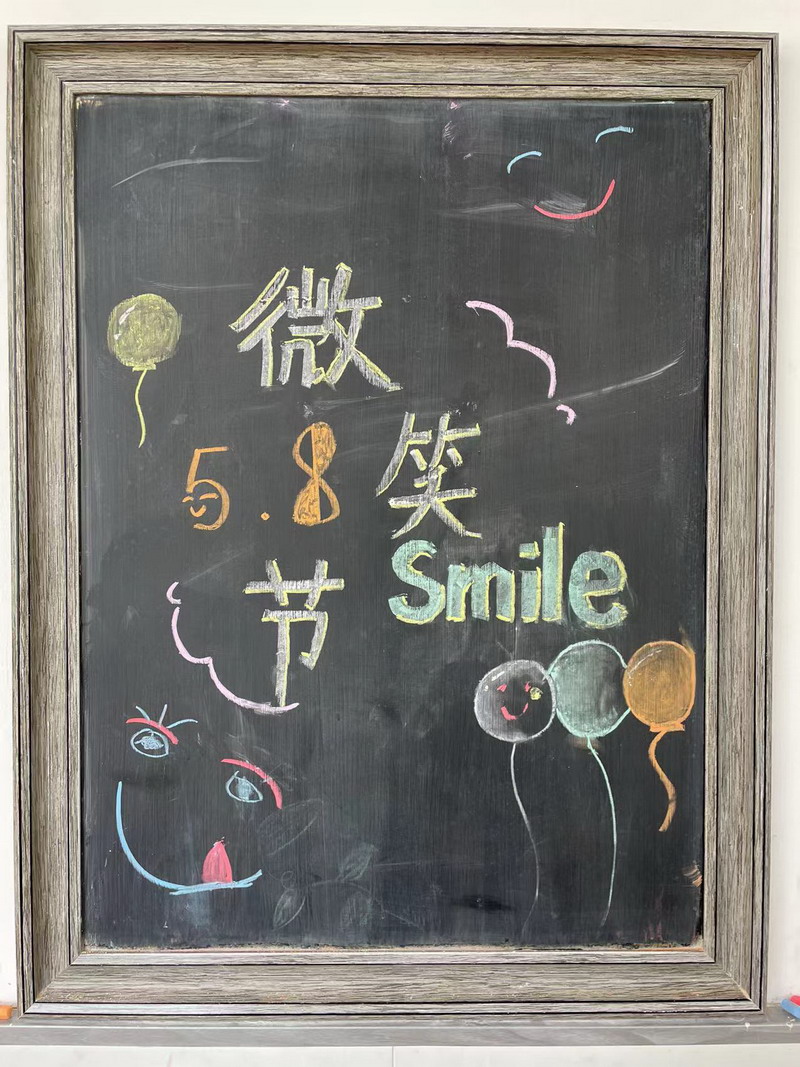 微
笑
5.8
节
Smile